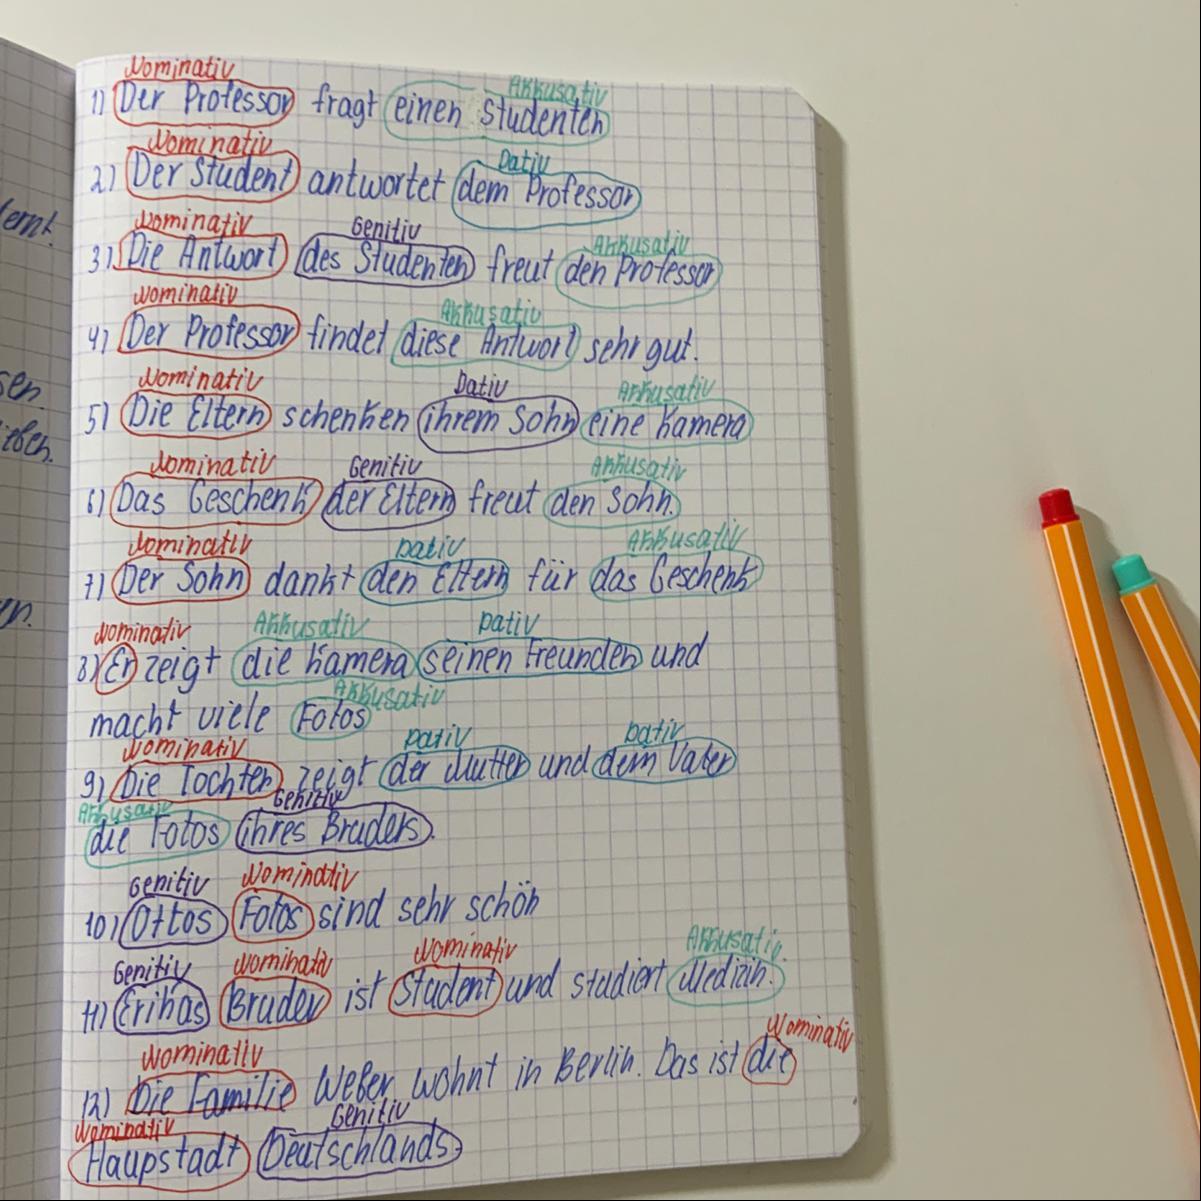 lernt.
Nominativ Akkusativ
1) Der Professor fragt einen Studenten
Nominativ Dativ
2) Der Student antwortet dem Professor
Nominativ Genitiv Akkusativ
3) Die Antwort des Studenten freut den Professor
Nominativ Akkusativ
4) Der Professor findet diese Antwort sehr gut.
Nominativ Dativ Akkusativ
5) Die Eltern schenken ihrem Sohn eine Kamera
Nominativ Genitiv Akkusativ
6) Das Geschenk der Eltern freut den Sohn.
Nominativ Dativ Akkusativ
7) Der Sohn dankt den Eltern für das Geschenk
Nominativ Akkusativ Dativ
8) Er zeigt die Kamera seinen Freunden und
Akkusativ
macht viele Fotos
Nominativ Dativ Dativ
9) Die Tochter zeigt der Mutter und dem Vater
Akkusativ Genitiv
die Fotos ihres Bruders.
Genitiv Nominativ
10) Ottos Fotos sind sehr schön
Genitiv Nominativ Nominativ Akkusativ.
11) Erikas Bruder ist Student und studiert Medizin.
Nominativ Nominativ
12) Die Familie Weber wohnt in Berlin. Das ist die
Nominativ Genitiv
Haupstadt Deutschlands.